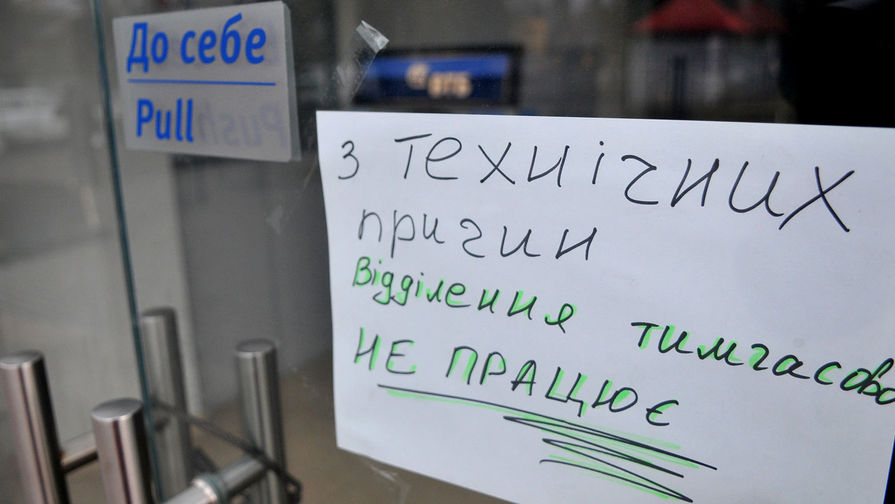 До себе
Pull
Push
ВТБ
З ТЕХНІЧНИХ
ПРИЧИН
Відділення тимчасово
НЕ ПРАЦЮЄ